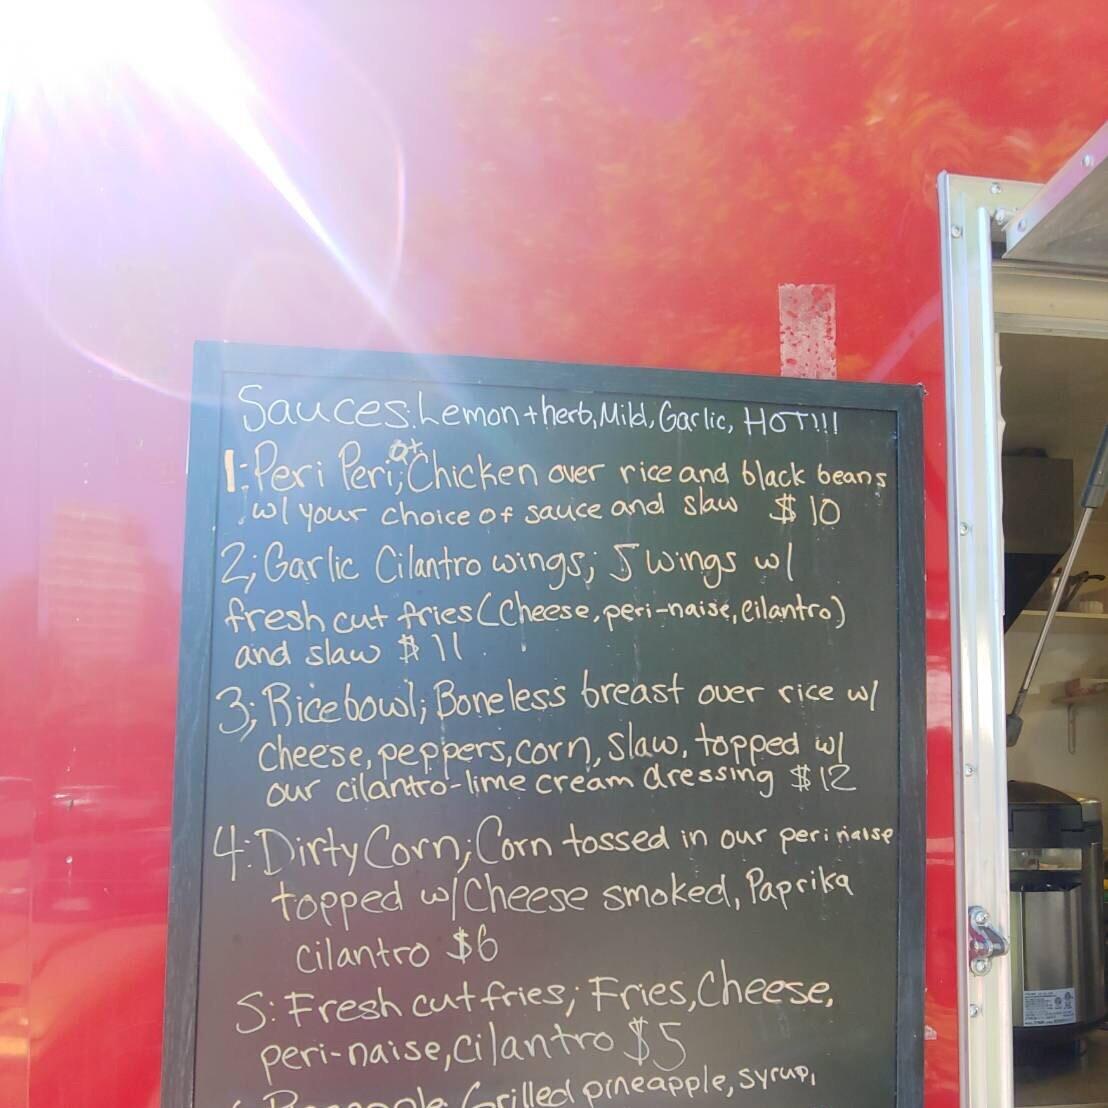 Sauces: Lemon + herb, Mild, Garlic, HOT!!!
1: Peri Peri; Chicken over rice and black beans
w/ your choice of sauce and slaw $10
2; Garlic Cilantro wings; 5 wings w/
fresh cut fries (Cheese, peri-naise, cilantro)
and slaw $11
3; Rice bowl; Boneless breast over rice w/
cheese, peppers, corn, slaw, topped w/
our cilantro-lime cream dressing $12
4: Dirty Corn; Corn tossed in our peri naise
topped w/ Cheese smoked, Paprika
cilantro $6
5: Fresh cut fries; Fries, Cheese,
peri-naise, cilantro $5
Grilled pineapple, syrup,